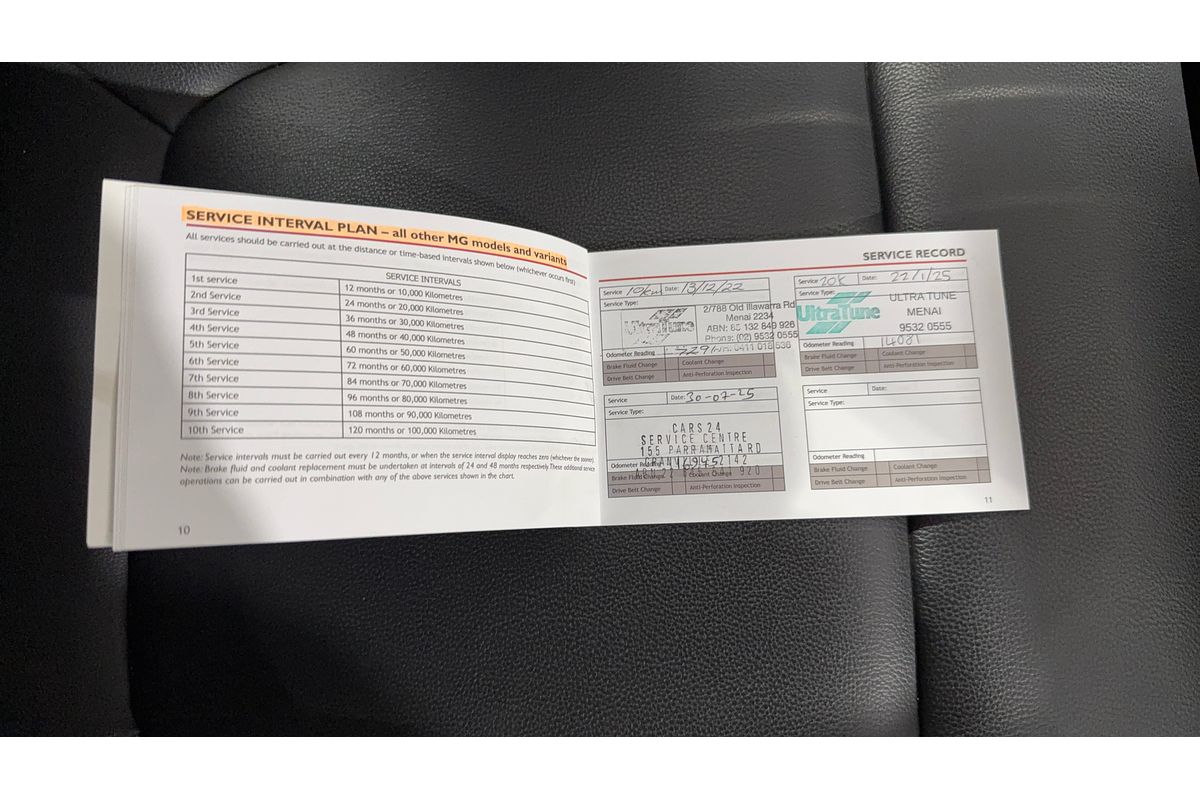 SERVICE INTERVAL PLAN – all other MG models and variants
All services should be carried out at the distance or time-based intervals shown below (whichever occurs first)
SERVICE INTERVALS
1st service 12 months or 10,000 Kilometres
2nd Service 24 months or 20,000 Kilometres
3rd Service 36 months or 30,000 Kilometres
4th Service 48 months or 40,000 Kilometres
5th Service 60 months or 50,000 Kilometres
6th Service 72 months or 60,000 Kilometres
7th Service 84 months or 70,000 Kilometres
8th Service 96 months or 80,000 Kilometres
9th Service 108 months or 90,000 Kilometres
10th Service 120 months or 100,000 Kilometres
Note: Service intervals must be carried out every 12 months, or when the service interval display reaches zero (whichever the sooner).
Note: Brake fluid and coolant replacement must be undertaken at intervals of 24 and 48 months respectively. These additional service
operations can be carried out in combination with any of the above services shown in the chart.
10
SERVICE RECORD
Service 10km Date: 13/12/22
Service Type:
UltraTune
2/788 Old Illawarra Rd
Menai 2234
ABN: 85 132 849 926
Phone: (02) 9532 0555
0411 018 536
Odometer Reading
Brake Fluid Change Coolant Change
Drive Belt Change Anti-Perforation Inspection
Service 20k Date: 22/1/25
Service Type:
UltraTune
ULTRA TUNE
MENAI
9532 0555
Odometer Reading 14081
Brake Fluid Change Coolant Change
Drive Belt Change Anti-Perforation Inspection
Service Date: 30-07-25
Service Type:
CARS24
SERVICE CENTRE
155 PARRAMATTA RD
GRANV 2142
Odometer Reading 16945
Brake Fluid Change Coolant Change
Drive Belt Change Anti-Perforation Inspection
Service Date:
Service Type:
Odometer Reading
Brake Fluid Change Coolant Change
Drive Belt Change Anti-Perforation Inspection
11